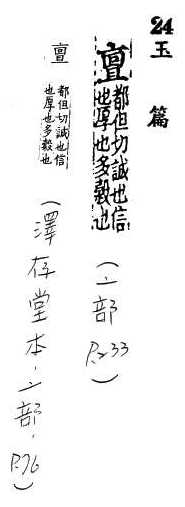 24 玉篇
亶 都但切誠也信
也厚也多穀也
(亠部 P.233)
亶 都但切誠也信
也厚也多穀也
(澤存堂本.亠部. P.76)